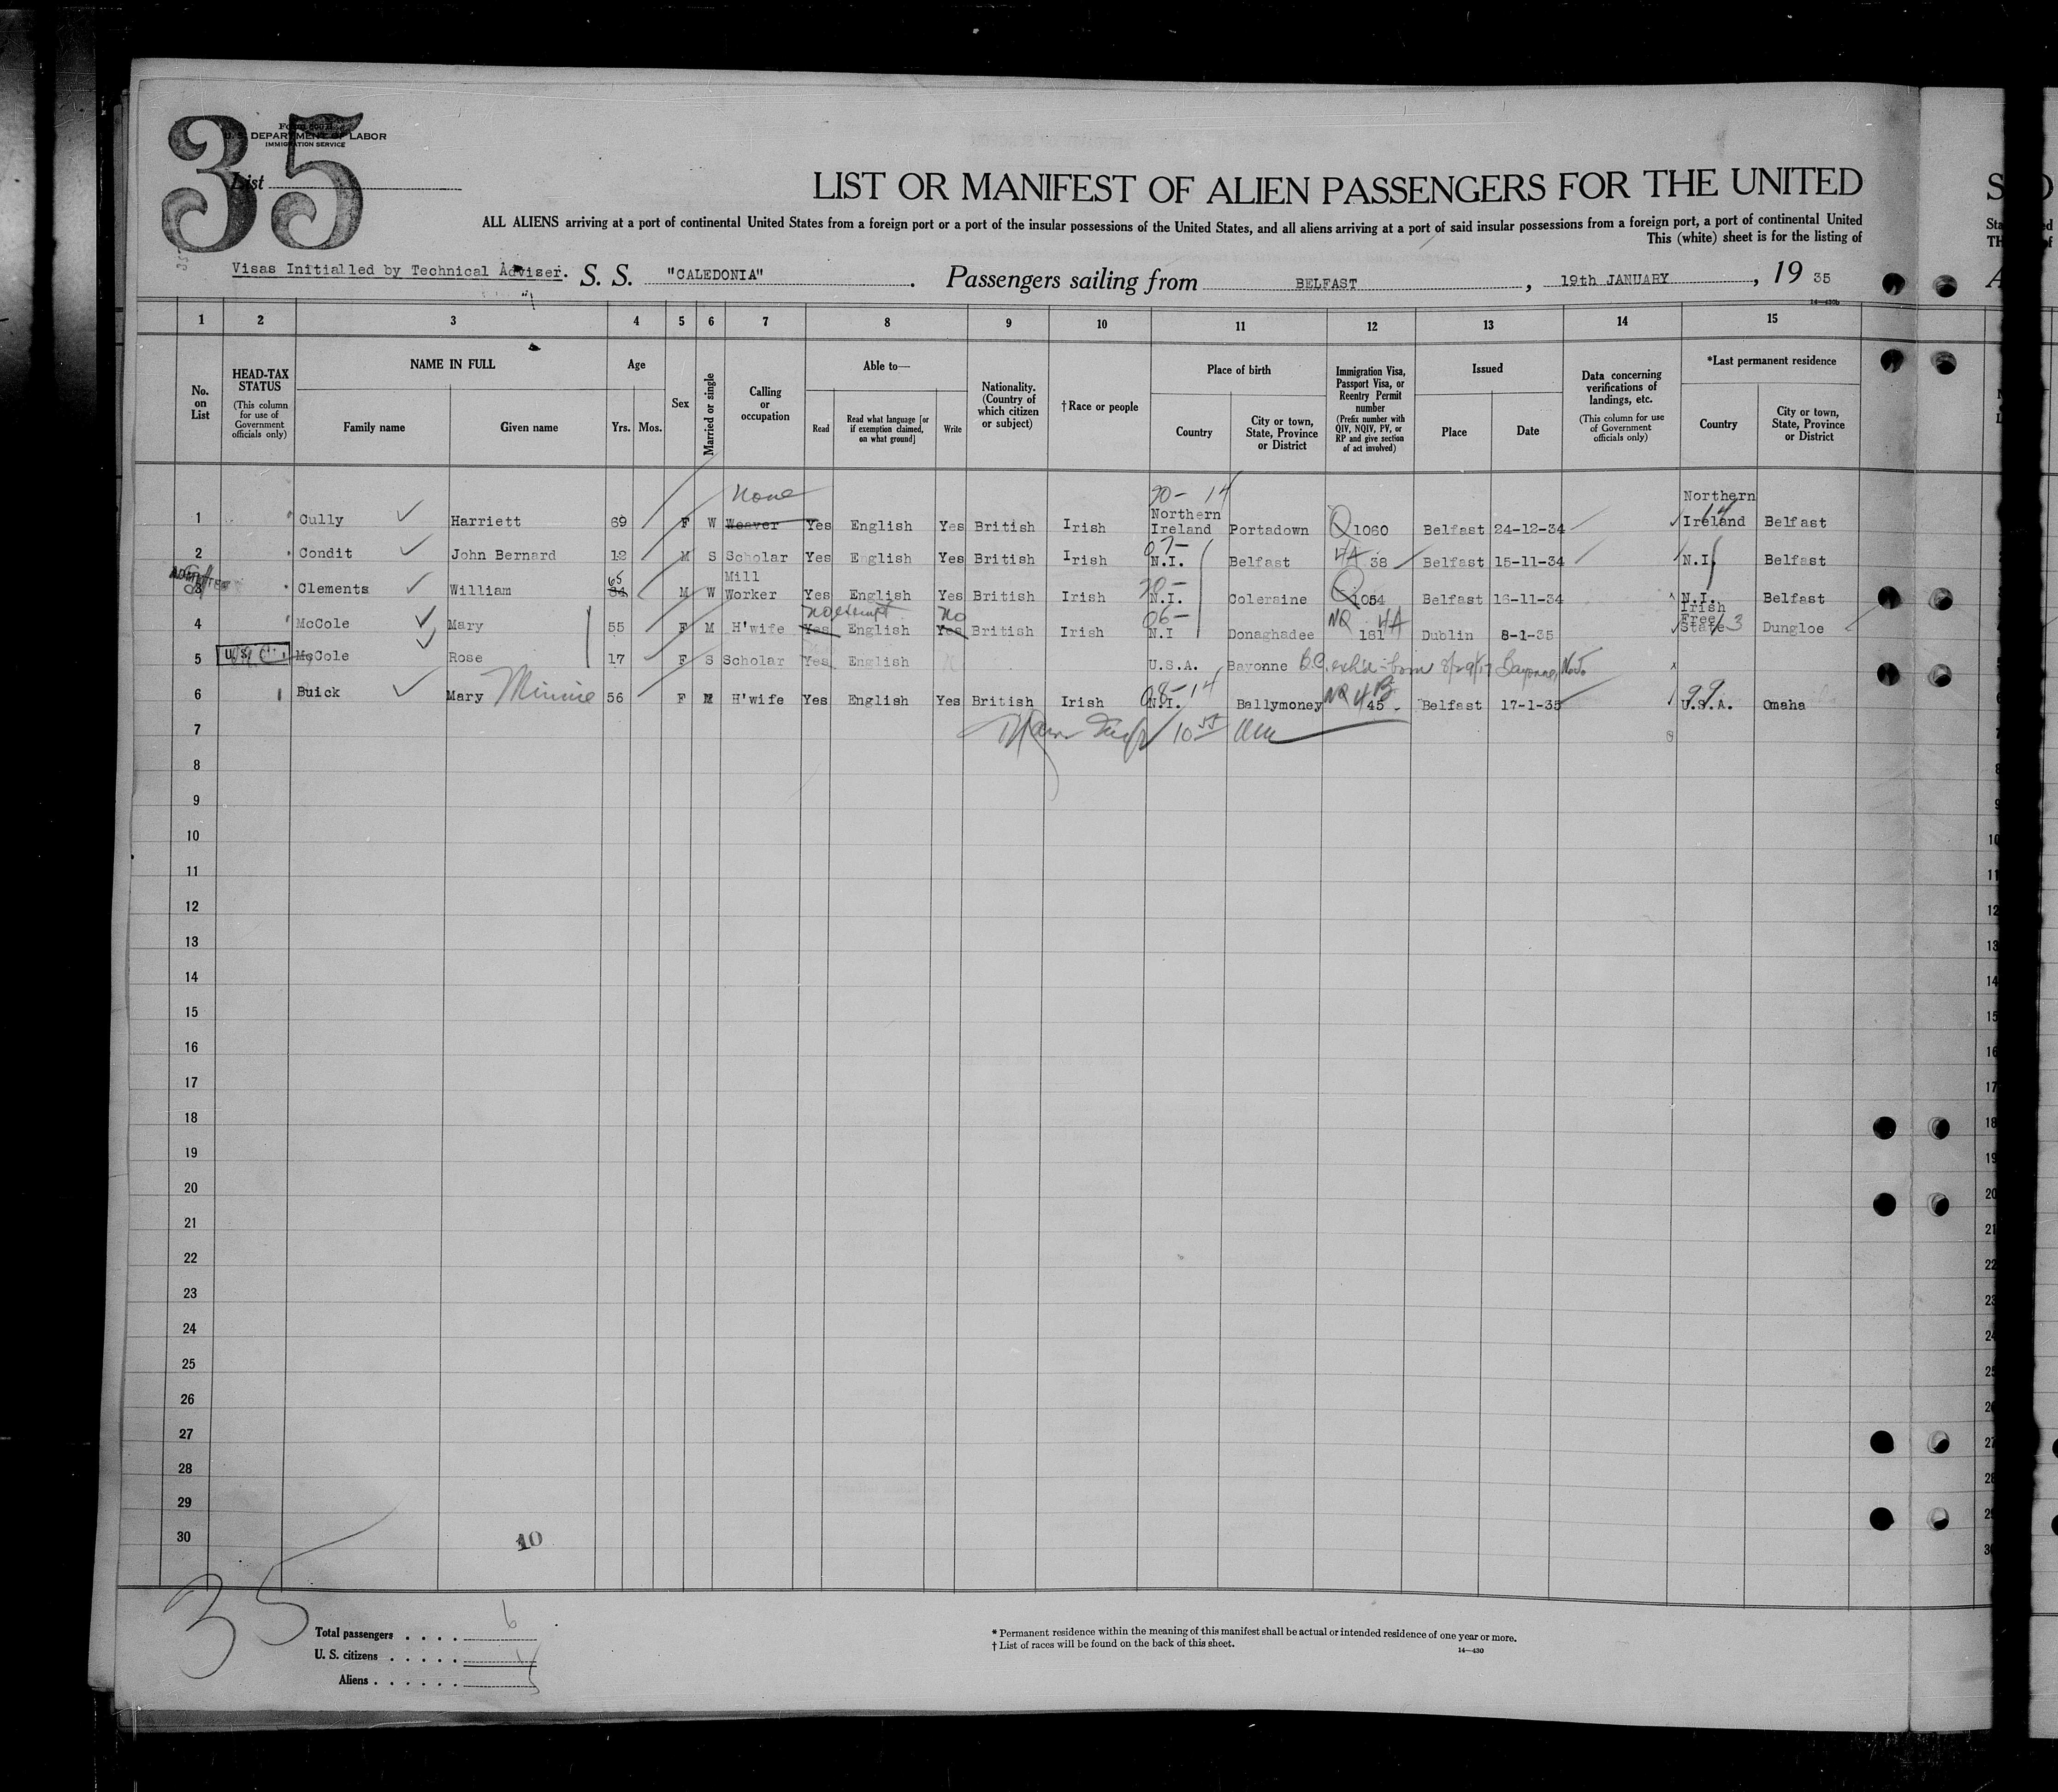 35
Form 500 B
U. S. DEPARTMENT OF LABOR
IMMIGRATION SERVICE
List
LIST OR MANIFEST OF ALIEN PASSENGERS FOR THE UNITED
ALL ALIENS arriving at a port of continental United States from a foreign port or a port of the insular possessions of the United States, and all aliens arriving at a port of said insular possessions from a foreign port, a port of continental United
This (white) sheet is for the listing of
Visas Initialled by Technical Adviser. S. S. "CALEDONIA". Passengers sailing from BELFAST, 19th JANUARY, 19 35
14—430b
1 2 3 4 5 6 7 8 9 10 11 12 13 14 15
No. on List
HEAD-TAX STATUS
(This column for use of Government officials only)
NAME IN FULL
Family name Given name
Age
Yrs. Mos.
Sex
Married or single
Calling or occupation
Able to—
Read Read what language [or if exemption claimed, on what ground] Write
Nationality. (Country of which citizen or subject)
†Race or people
Place of birth
Country City or town, State, Province or District
Immigration Visa, Passport Visa, or Reentry Permit number
(Prefix number with QIV, NQIV, PV, or RP and give section of act involved)
Issued
Place Date
Data concerning verifications of landings, etc.
(This column for use of Government officials only)
*Last permanent residence
Country City or town, State, Province or District
None 20- 14
1 Cully Harriett 69 F W Weaver Yes English Yes British Irish Northern Ireland Portadown Q 1060 Belfast 24-12-34 Northern Ireland 14 Belfast
2 Condit John Bernard 12 M S Scholar Yes English Yes British Irish 07- N.I. Belfast 4A 38 Belfast 15-11-34 N.I. Belfast
ADMITTED
3 Clements William 65 64 M W Mill Worker Yes English Yes British Irish 20- N.I. Coleraine Q 1054 Belfast 16-11-34 N.I. Belfast
no exempt no 06- NQ 4A
4 McCole Mary 55 F M H'wife Yes English Yes British Irish N.I Donaghadee 181 Dublin 8-1-35 Irish Free State 3 Dungloe
5 U.S.C. McCole Rose 17 F S Scholar Yes English U.S.A. Bayonne B.C. exh'd - born 8/29/17 Bayonne, N.J.
6 Buick Mary Minnie 56 F M H'wife Yes English Yes British Irish 08-14 N.I. Ballymoney NQ 4B 45 Belfast 17-1-35 99 U.S.A. Omaha
7 10 55 am
8
9
10
11
12
13
14
15
16
17
18
19
20
21
22
23
24
25
26
27
28
29
30
10
35
Total passengers . . . . 6
U. S. citizens . . . . . 1
Aliens . . . . . . 5
* Permanent residence within the meaning of this manifest shall be actual or intended residence of one year or more.
† List of races will be found on the back of this sheet.
14—430